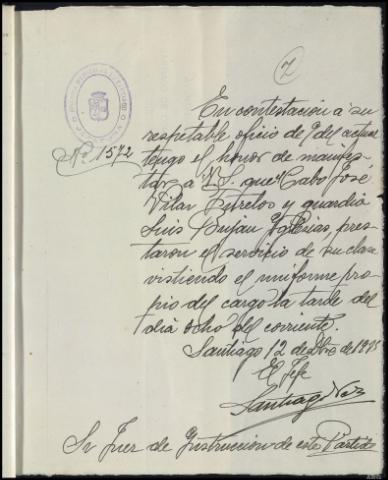 7
Nº 1572
En contestación a su
respetable oficio de 9 del actual
tengo el honor de manifes-
tar a V.S. que el Cabo José
Vilar y guardia
Luis Bujan Yglesias, pres-
taron el servicio de su clase
vistiendo el uniforme pro-
pio del cargo la tarde del
dia ocho del corriente.
Santiago 12 de de
El Jefe
Santiago
Sr Juez de Instruccion de este Partido